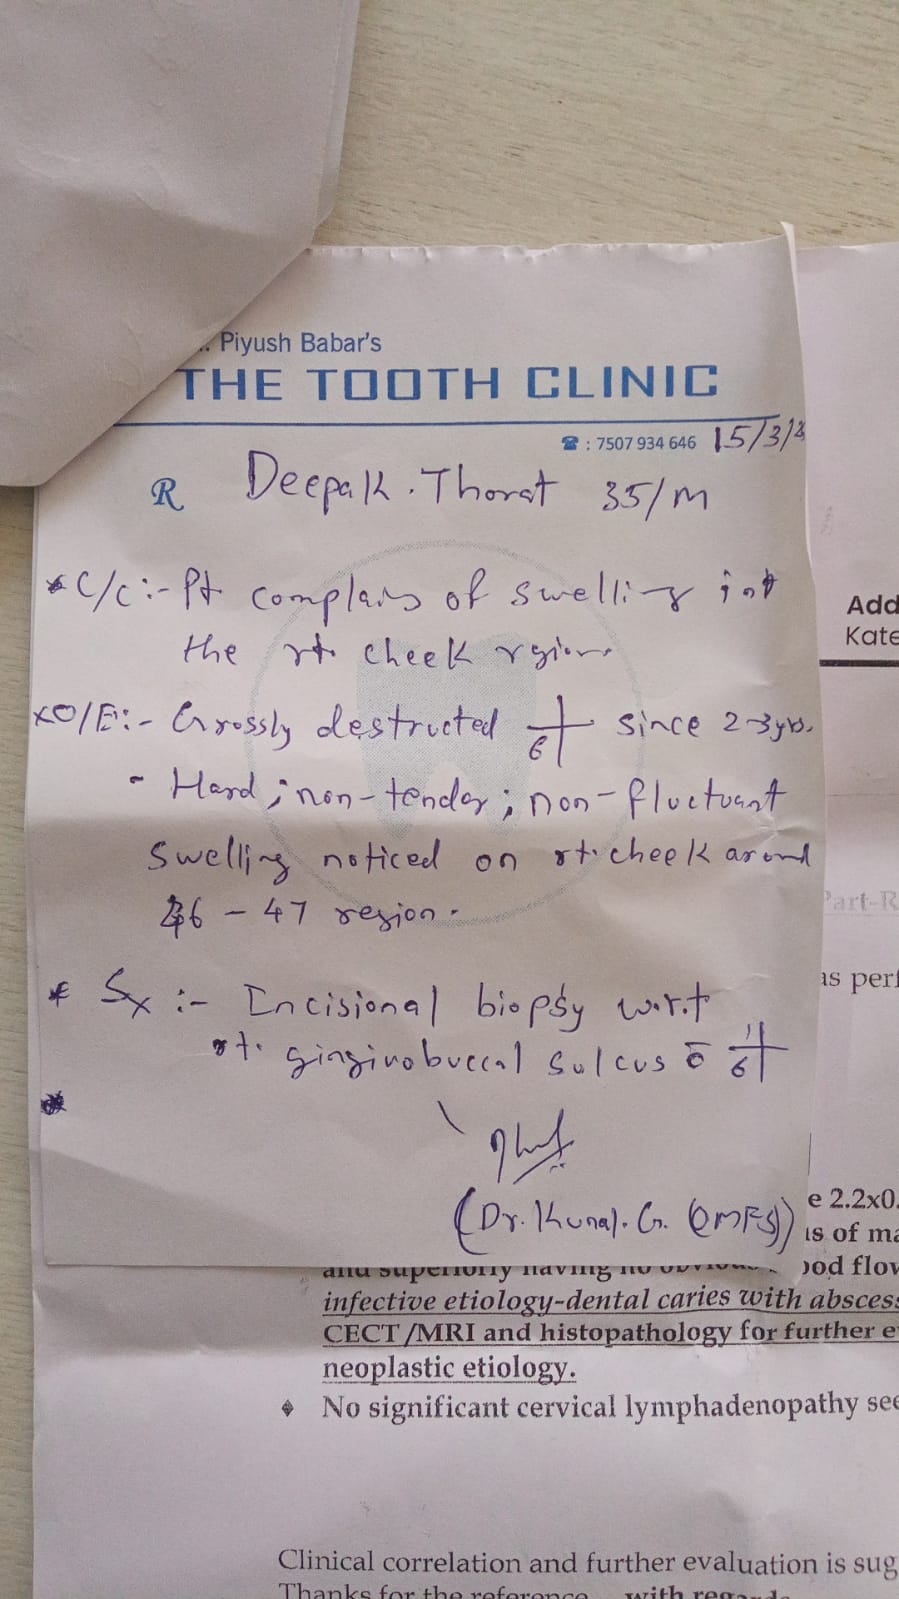 . Piyush Babar's
THE TOOTH CLINIC
: 7507 934 646 15/3/2
R Deepak . Thorat 35/M
* C/C :- Pt complains of swelling
the rt. cheek region.
* O/E :- Grossly destructed 6 since 2-3 yrs.
- Hard ; non-tender ; non-fluctuant
swelling noticed on rt. cheek around
46 - 47 region.
* Sx :- Incisional biopsy w.r.t
rt. gingivobuccal sulcus c̄ 6
(Dr. Kunal. G. (OMFS))
Add
Kate
Part-R
as perf
e 2.2x0.
is of ma
and superiorly having no ood flow
infective etiology-dental caries with abscess
CECT/MRI and histopathology for further e
neoplastic etiology.
No significant cervical lymphadenopathy see
Clinical correlation and further evaluation is sug
Thanks for the reference with regards